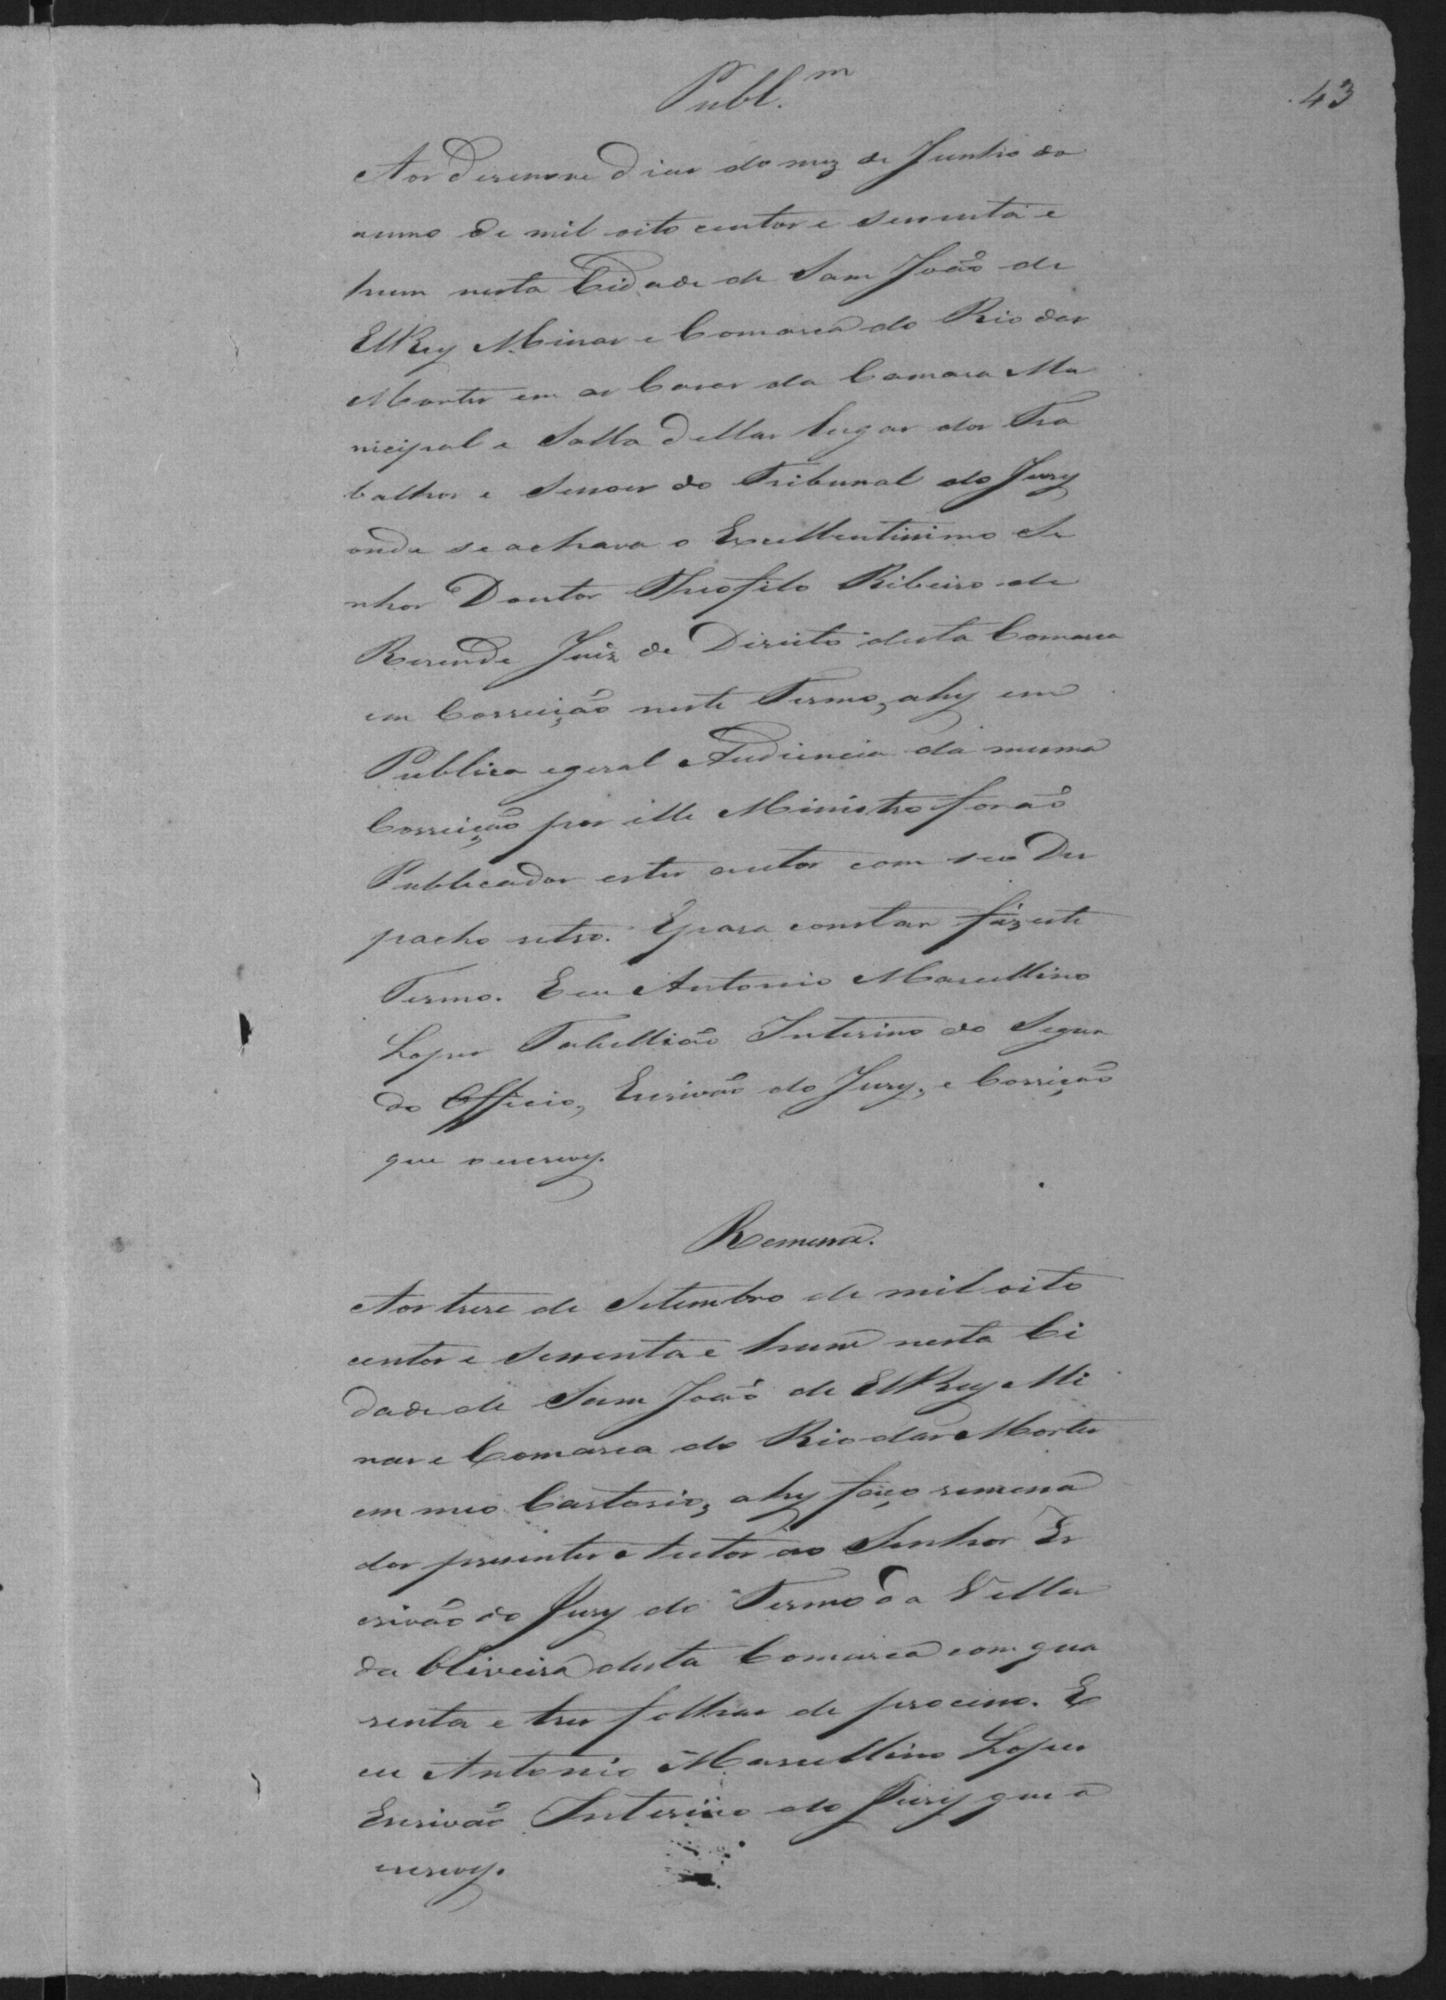 43
Publ.m
Aos Desenove Dias do mez de Junho do
anno de mil oito centos e sessenta e
hum nesta Cidade de Sam João de
ElRey Minas e Comarca do Rio das
Mortes em as Casas da Camara Mu
nicipal e Salla dellas lugar dos Tra
balhos e Sessoes do Tribunal do Jury
onde se achava o Excellentissimo Se
nhor Doutor Theofilo Ribeiro de
Resende Juiz de Direito desta Comarca
em Correição neste Termo, ahy em
Publica egeral Audiencia da mesma
Correição por elle Ministro forão
Publicados estes autos com seo Des
pacho retro. Epara constar fiz este
Termo. Eeu Antonio Marcellino
Lopes Tabellião Interino do Segun
do Officio, Escrivão do Jury, e Correição
que o escrevy.
Remessa.
Aos treze de Setembro de mil oito
centos e sessenta e hum nesta Ci
dade de Sam João de ElRey Mi
nas e Comarca do Rio das Mortes
em meo Cartorio, ahy faço remessa
dos presentes Autos ao Senhor Es
crivão do Jury do Termo da Villa
da Oliveira desta Comarca com qua
renta e tres folhas de processo. E
eu Antonio Marcellino Lopes
Escrivão Interino do Jury que o
escrevy.